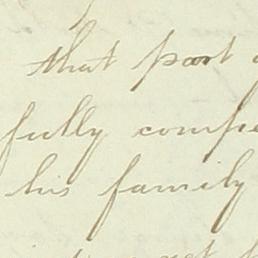 that part
fully compe
his family